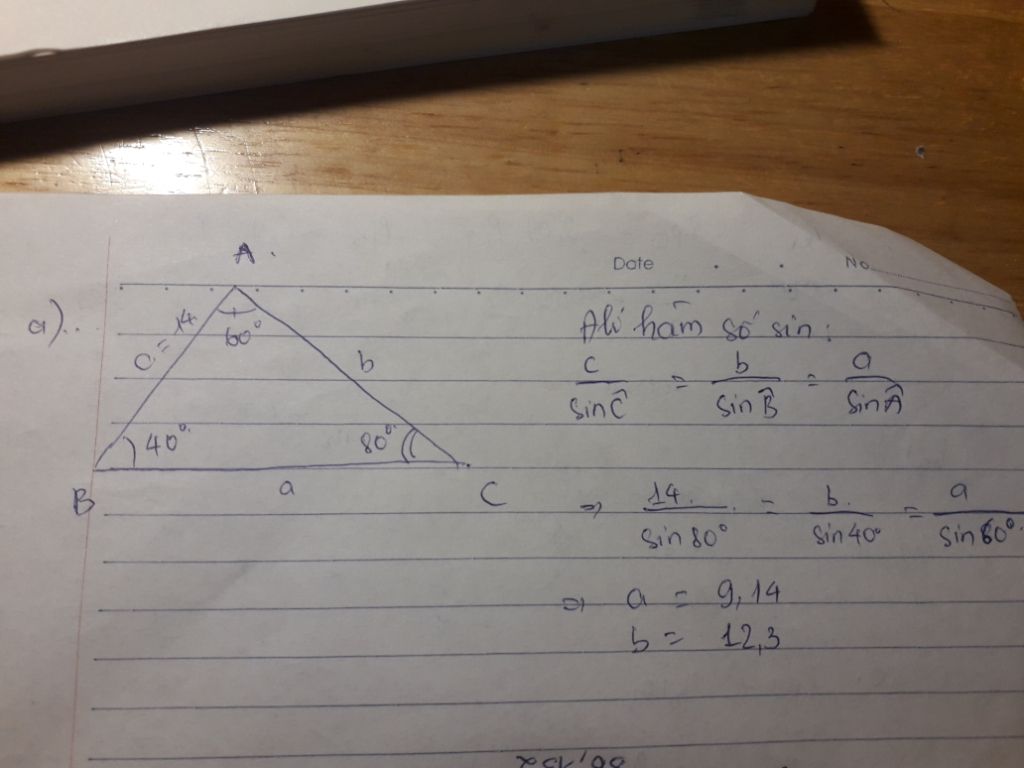 Date No.
a)
A
c = 14
60°
b
40°
80°
B
a
C
hàm số sin:
c/sin Ĉ = b/sin B̂ = a/sin Â
⇒ 14/sin 80° = b/sin 40° = a/sin 60°
⇒ a = 9,14
b = 12,3